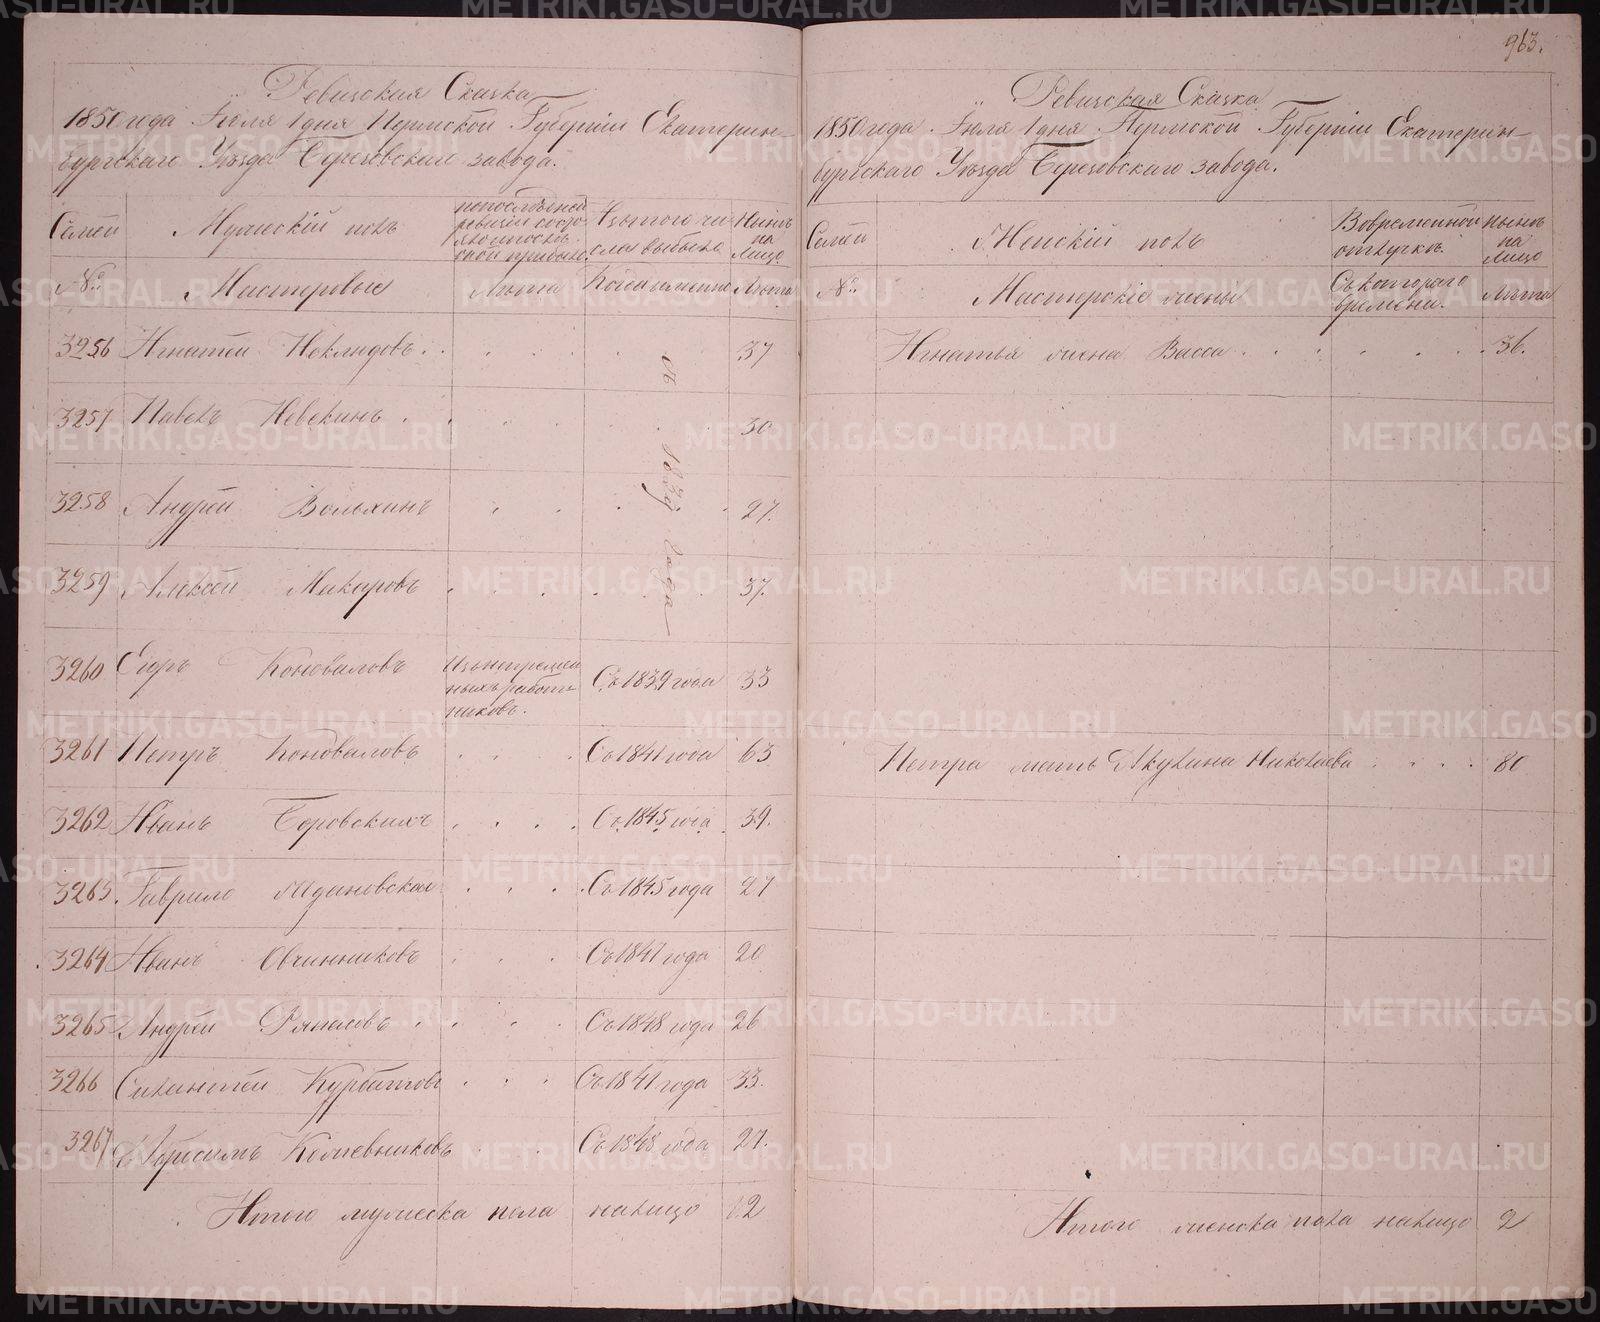 963.
Ревизская Сказка
1850 года Іюля 1 дня Пермской Губерніи Екатерин-
бургскаго Уѣзда Березовскаго завода.
Семей
Мужескій полъ
Изъ того чи-
сла выбыло
Нынѣ
на
лицо
№
Мастеровые
Лѣта
Когда именно
Лѣта
3256 Игнатей . . . 37
съ 1839 года
3257 Павелъ Невекинъ . . . 30
3258 Андрей Вольхинъ . . . 27.
3259 Алексей Макаровъ . . . 37.
3260 Егоръ Коноваловъ
Изъ непремен
ныхъ работ-
никовъ.
Съ 1839 года 33
3261 Петръ Коноваловъ . . . Съ 1841 года 63
3262 Иванъ Боровскихъ . . . Съ 1845 года 39.
3263 Гаврило . . . Съ 1845 года 27
3264 Иванъ Овчинниковъ . . . Съ 1847 года 20
3265 Андрей . . . Съ 1848 года 26
3266 Силантей Курбатовъ . . . Съ 1847 года 33.
3267 Кожевниковъ . . . Съ 1848 года 27.
Итого мужеска пола налицо 12
Ревизская Сказка
1850 года Іюля 1 дня Пермской Губерніи Екатерин-
бургскаго Уѣзда Березовскаго завода.
Семей
Женскій полъ
Вовременной
отлучкѣ.
Нынѣ
на
лицо
№
Мастерскіе жены
Съ котораго
времени.
Лѣта
Игнатья жена Васса . . . 36.
Петра мать Акулина Николаева . . . 80
Итого женска пола налицо 2
METRIKI.GASO-URAL.RU